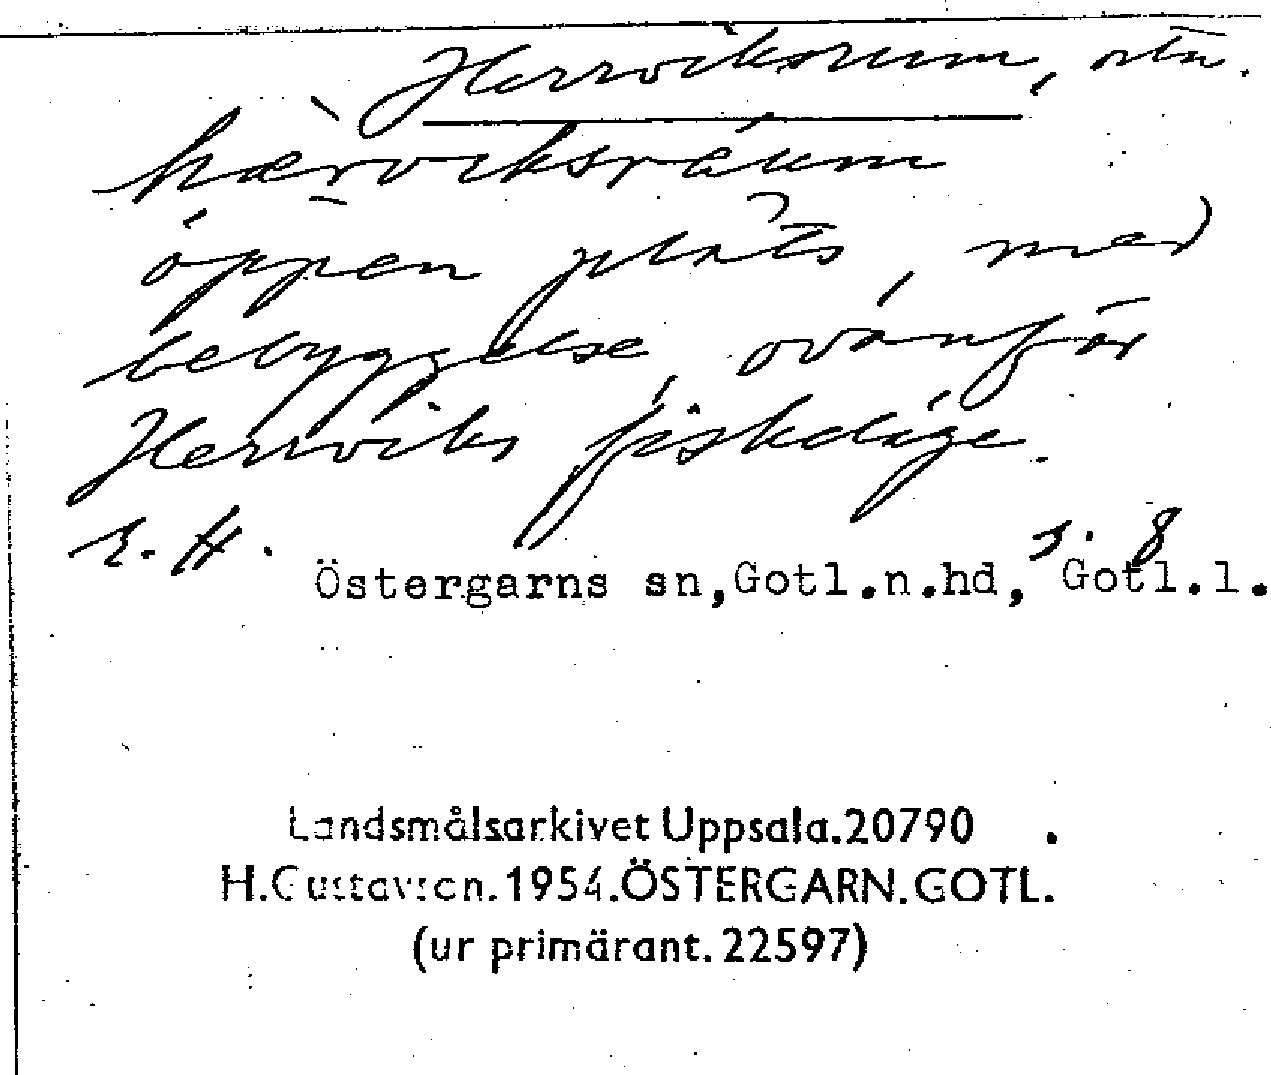 Herrviksrum, otn.
hærviksráum
öppen plats, med
bebyggelse, ovanför
Herrviks fiskeläge.
E. H. s. 8
Östergarns sn,Gotl.n.hd, Gotl.l.
Landsmålsarkivet Uppsala.20790
H.Gustavson.1954.ÖSTERGARN.GOTL.
(ur primärant. 22597)